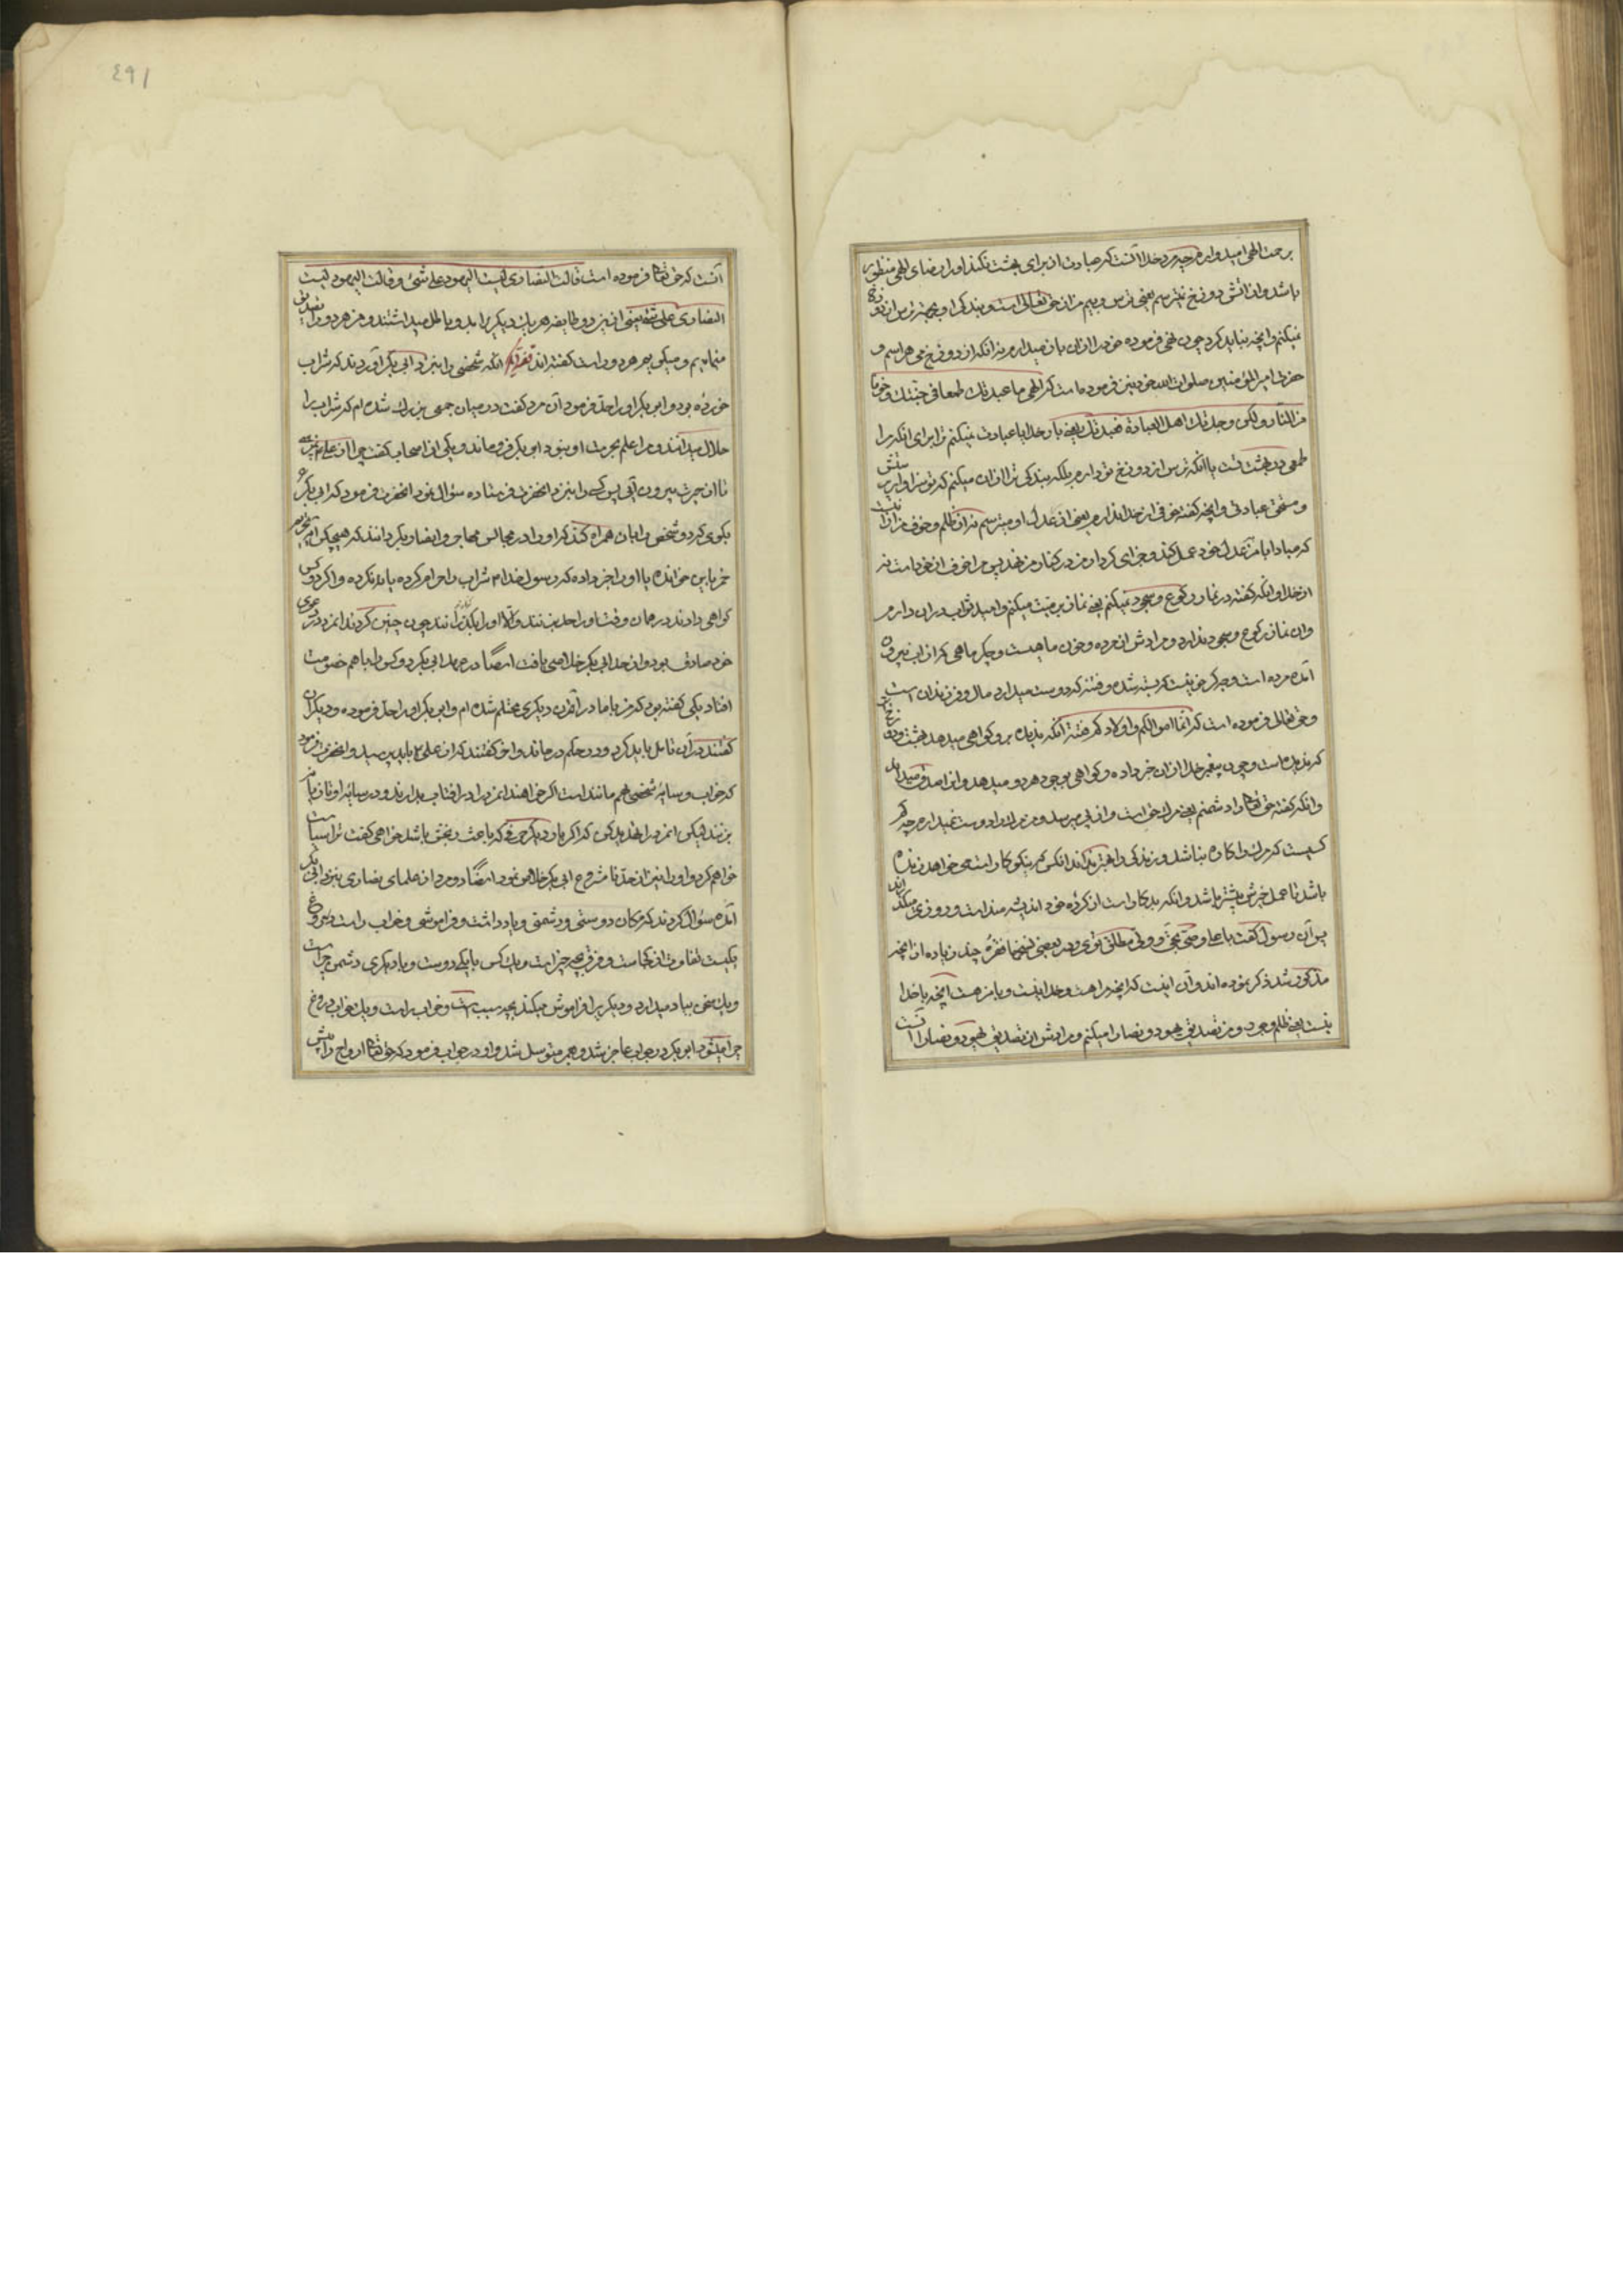 برحمت الهی امیدوارم چه مرد خدا آنست که عبادت از برای بهشت نکند او را رضای الهی منظور
باشد و از آتش دوزخ نیز نترسم یعنی ترس و بیم من از حق تعالی است و بندگی او بجهة ترس از دوزخ
نمیکنم و آنچه نباید کرد چون نهی فرموده خود را از آن باز میدارم نه آنکه از دوزخ می هراسم و
حضرت امیر المؤمنین صلوات الله خود نیز فرموده است که الهی ما عبدتک طمعا فی جنتک و خوفا
من النار ولکن وجدتک اهل العبادة فعبدتک یعنی بار خدایا عبادت نمیکنم ترا برای آنکه مرا
طمعی در بهشت تست یا آنکه ترس از دوزخ تو دارم بلکه بندگی ترا از آن میکنم که تو سزاوار پرستش
و مستحق عبادتی و آنچه گفته خوفی از خدا ندارم یعنی از عدل او میترسم نه از ظلم و خوف من از آنست
که مبادا با من بعدل خود عمل کند و جزای کردار من در کنار من نهد پس مرا خوف از خود است نه
از خدا و آنکه گفته در نماز رکوع و سجود نمیکنم یعنی نماز بر میت میکنم و امید ثواب در آن دارم
و آن نماز رکوع و سجود ندارد و مرادش از مرده و خون ماهیست و جگر ماهی که از آب بیرون
آمده مرده است و جگر خونیست که بسته شده و فتنه که دوست میدارد مال و فرزندان است
و حق تعالی فرموده است که انما اموالکم و اولادکم فتنة آنکه ندیده بر و گواهی میدهد بهشت و دوزخست
که ندیده است و چون پیغمبر خدا از آن خبر داده و گواهی بوجود هر دو میدهد و آنرا صدق میداند
و آنکه گفته حق تعالی را دشمنم یعنی مرگ حق است و از پی میرسد و من آن را دوست نمیدارم چه
کیست که مرگ را کاره نباشد و زندگی را بهتر نداند آنکس که نیکوکار است می خواهد زنده
باشد تا عمل خیرش بیشتر باشد و آنکه بدکار است از کرده خود اندیشه مند است و روزی میگذراند
پس آن رسول گفت یا علی وصی بحق و ولی مطلق توئی و در بعضی نسخها فقره چند زیاده از آنچه
مذکور شد ذکر نموده اند و آن اینست که آنچه مرا هست و خدا را نیست و با من هست آنچه با خدا
نیست یعنی ظلم و جور و من تصدیق یهود و نصارا میکنم و مرادش از تصدیق یهود و نصارا آنست
٤٩١
آنست که حق تعالی فرموده است قالت النصاری لیست الیهود علی شیء و قالت الیهود لیست
النصاری علی شیء یعنی از این دو طایفه هر یک دیگریرا بد و باطل میداشتند و من هر دو را تصدیق
مینمایم و میگویم هر دو راست گفته اند آنکه شخصی را بنزد ابی بکر آوردند که شراب
خورده بود و ابی بکر او را حد فرمود آن مرد گفت در میان جمعی بزرک شده ام که شراب را
حلال میدانند و مرا علم بحرمت او نبود ابو بکر فرو ماند و یکی از اصحاب گفت چرا از علی نمی پرسی
تا از حیرت بیرون آیی پس کسی را بنزد آنحضرت فرستاده سؤال نمود آنحضرت فرمود که ابی بکر را
بگوی که دو شخص را با آن همراه کند که او را در مجالس مهاجر و انصار بگردانند که هیچکس آیه تحریم
خمر باین خوانده یا او را خبر داده که رسول خدا م شراب را حرام کرده یا نه نکرده و اگر دو کس
گواهی دادند در همان وقت او را حد بزنند و الا او را بگذرانند چون چنین کردند آنمرد در دعوی
خود صادق بود و از حد ابی بکر خلاصی یافت ایضا در عهد ابی بکر دو کس را با هم خصومت
افتاد یکی گفته بود که من با مادر آن دیگری محتلم شده ام و ابی بکر او را حد فرموده و دیگران
گفتند در آن تامل باید کرد و در حکم در ماند و آخر گفتند که از علی باید پرسید و آنحضرت فرمود
که خواب و سایه شخصی هم مانند است اگر خواهند آنمرد را در آفتاب بدارند و در سایه او تازیانه
بزنند لیکن آنمرد را تهدید کن که اگر بار دیگر حرفی که باعث رنجش باشد خواهی گفت ترا سیاست
خواهم کرد و او را نیز از حد نا مشروع ابی بکر خلاص نمود ایضا دو مرد از علمای نصاری بنزد ابی بکر
آمده سؤال کردند که مکان دوستی و دشمنی و یاد داشت و فراموشی و خواب راست و دروغ
یکیست تفاوت از کجاست و فرق بچه چیز است و یک کس با یکی دوست و با دیگری دشمن چراست
و یک سخن بیاد میدارد و دیگریرا فراموش میکند بچه سبب است و خواب راست و یک خواب دروغ
چرا میشود ابو بکر در جواب عاجز شد و بعمر متوسل شد و او در جواب فرمود که حق تعالی ارواح را پیش